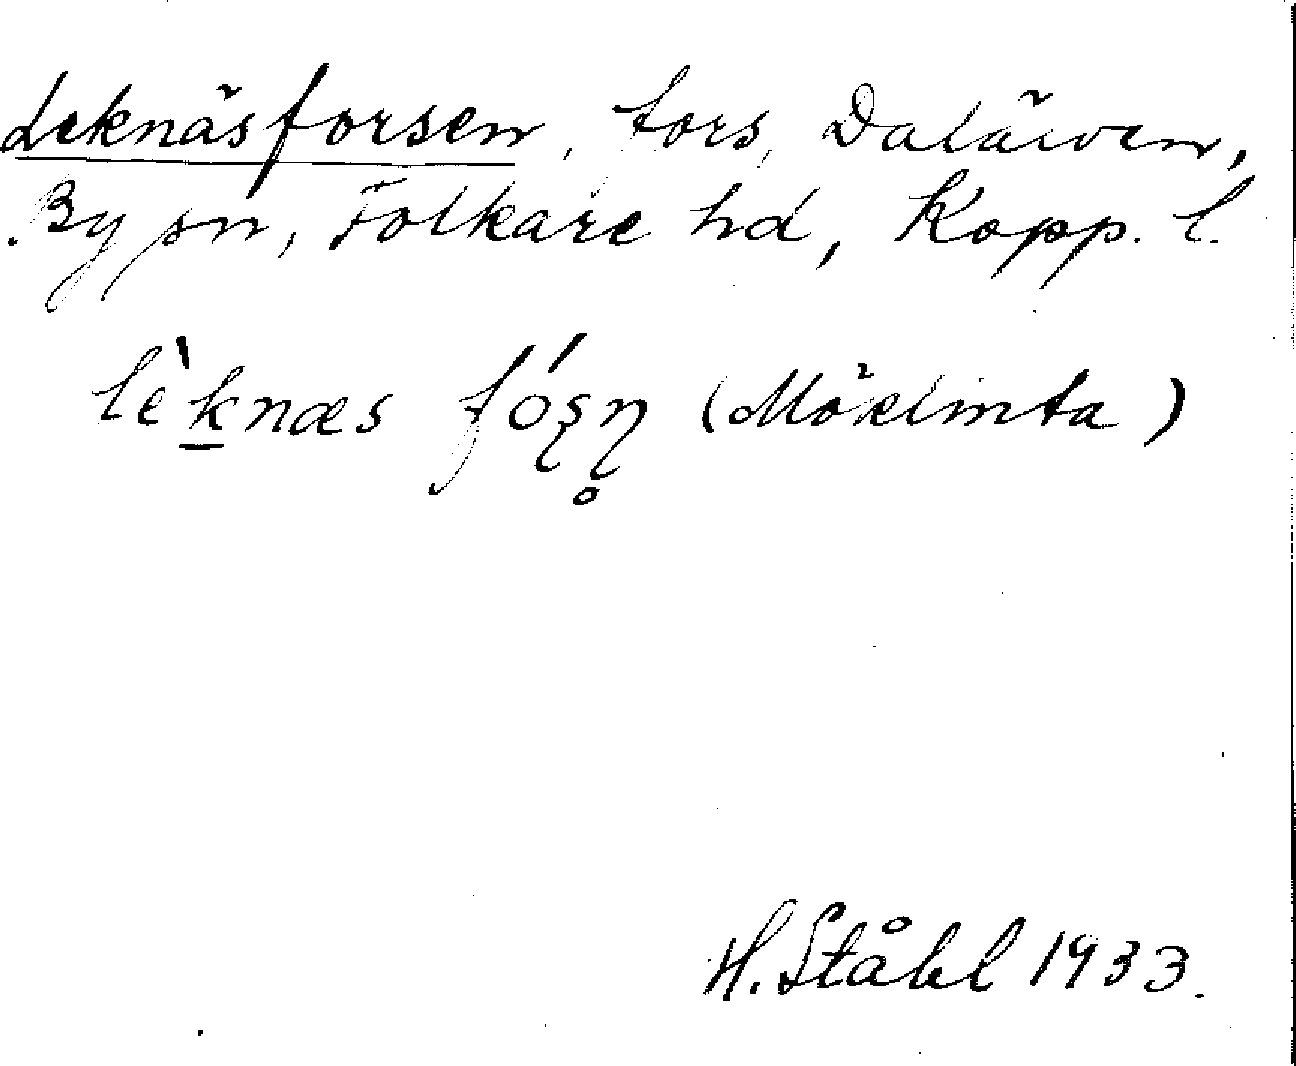 Leknäsforsen, fors, Dalälven,
By sn, Folkare hd, Kopp. l.
lèknæs fóʂɳ̥ (Möklinta)
H. Ståhl 1933.